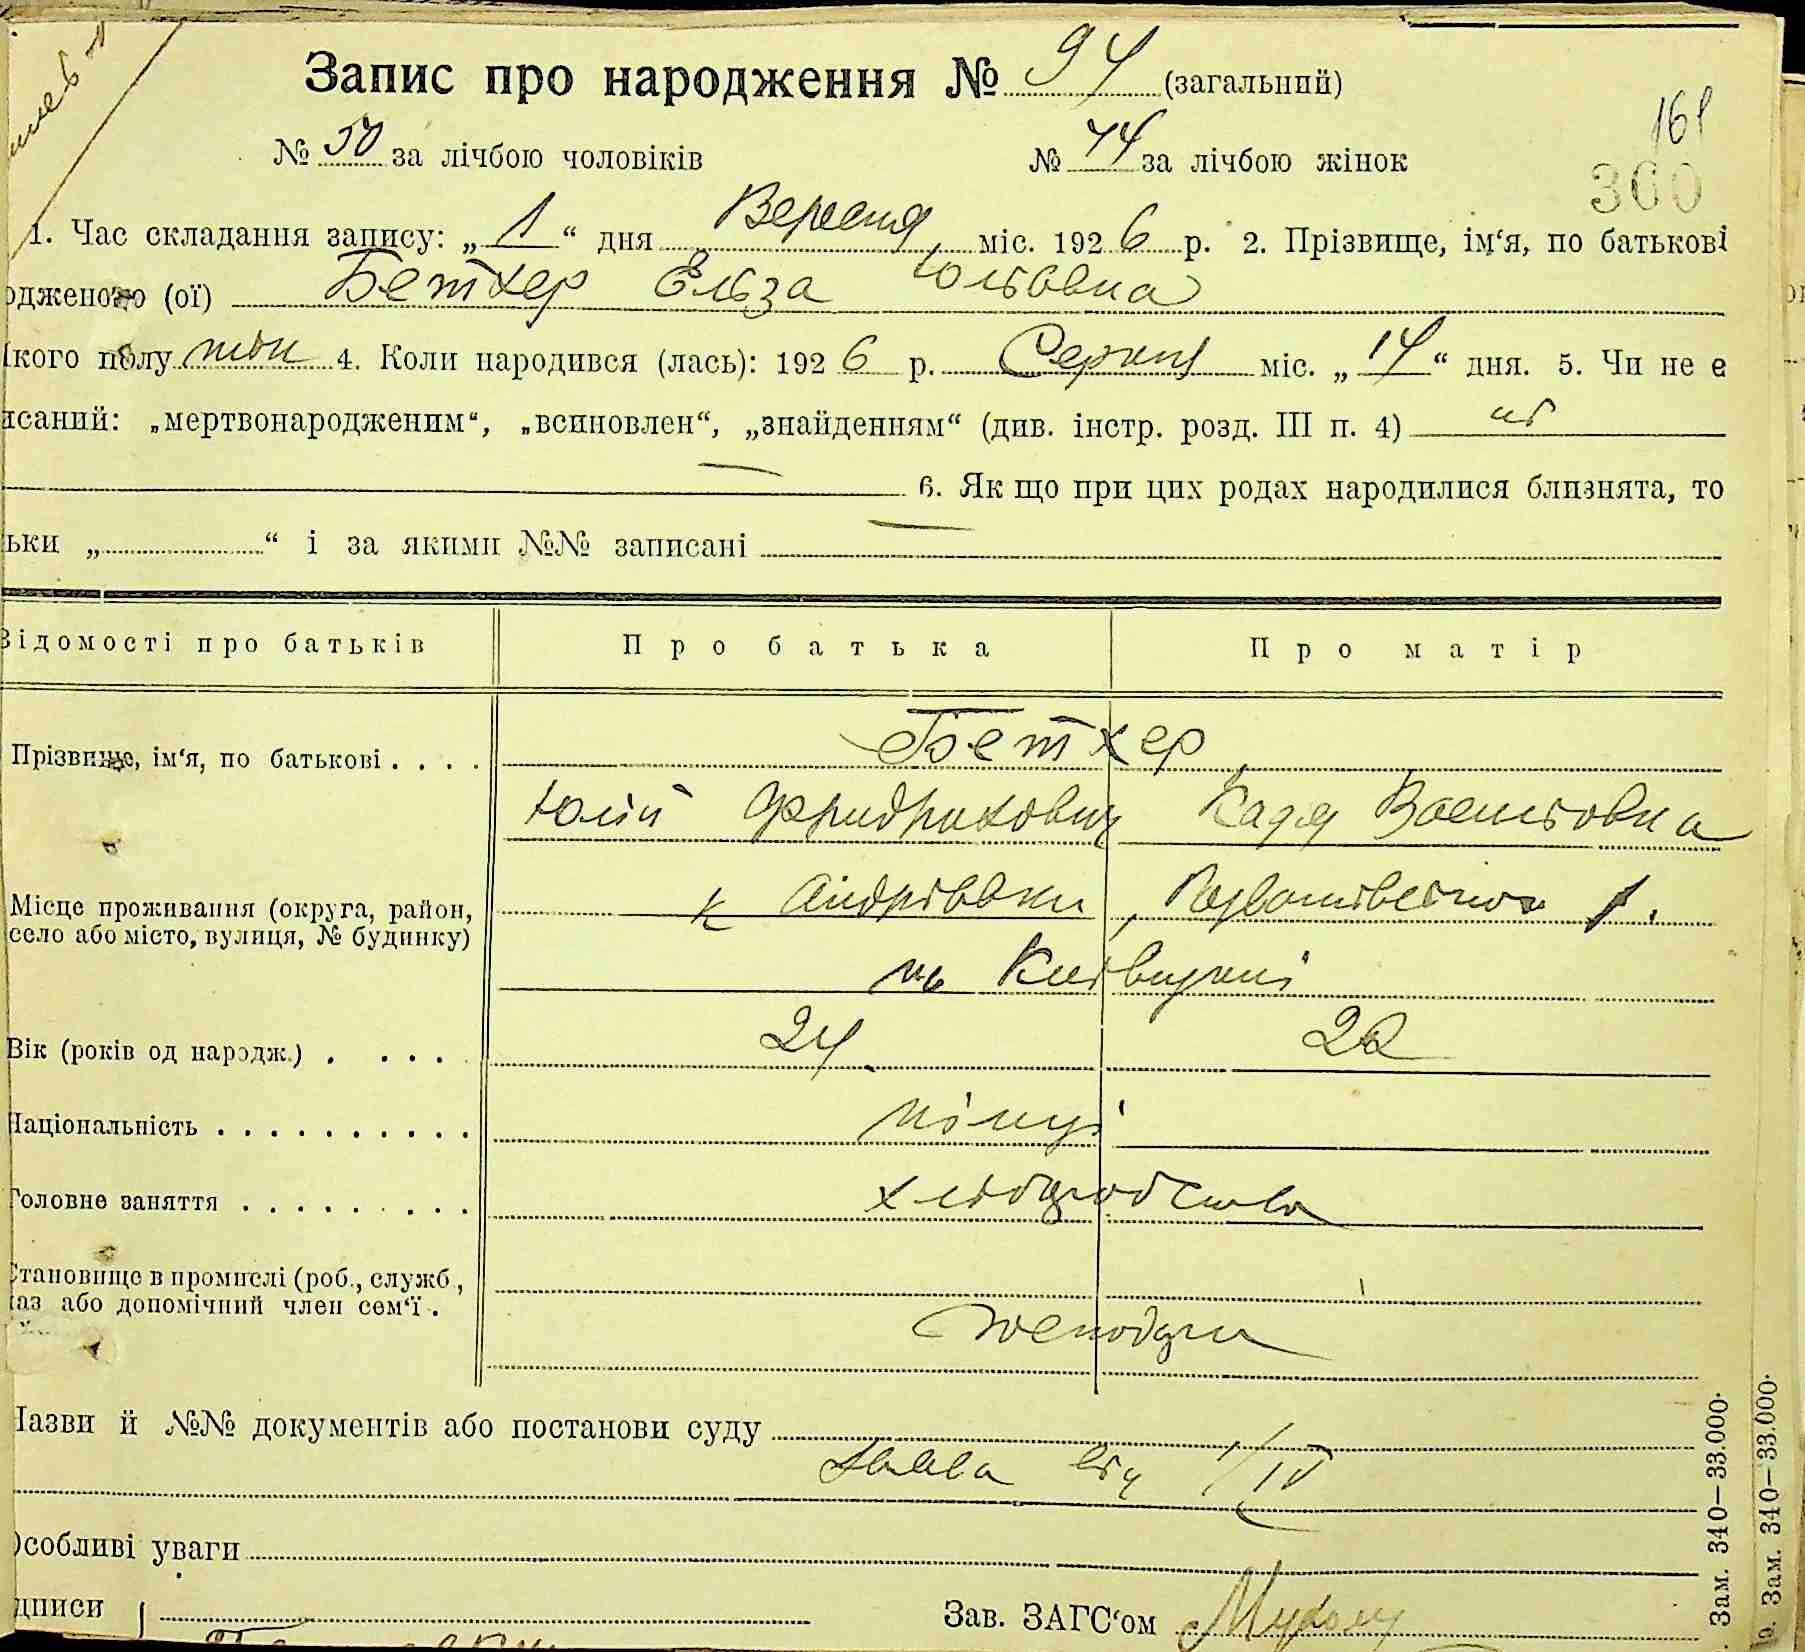 Запис про народження № 94 (загальний)
161
№ 50 за лічбою чоловіків № 44 за лічбою жінок
360
1. Час складання запису: „ 1 “ дня Вересня міс. 192 6 р. 2. Прізвище, ім‘я, по батькові
одженого (ої) Бетхер Ельза Юльевна
якого полу жін 4. Коли народився (лась): 192 6 р. Серпня міс. „ 14 “ дня. 5. Чи не є
исаний: „мертвонародженим“, „всиновлен“, „знайденням“ (див. інстр. розд. III п. 4) ні
6. Як що при цих родах народилися близнята, то
ьки „ “ і за якими №№ записані
Відомості про батьків Про батька Про матір
Бетхер
Прізвище, ім‘я, по батькові
Юлій Фридрихович Во
к Андріївки, р.
Місце проживання (округа, район, село або місто, вулиця, № будинку)
на Київщині
Вік (років од народж.) 24 22
Національність німці
Головне заняття хліборобство
Становище в промислі (роб., служб., 
або допомічний член сем‘ї.
Назви й №№ документів або постанови суду
Заява від 1/IX
Особливі уваги
дписи Зав. ЗАГС‘ом
Зам. 340—33.000.
Зам. 340—33.000.